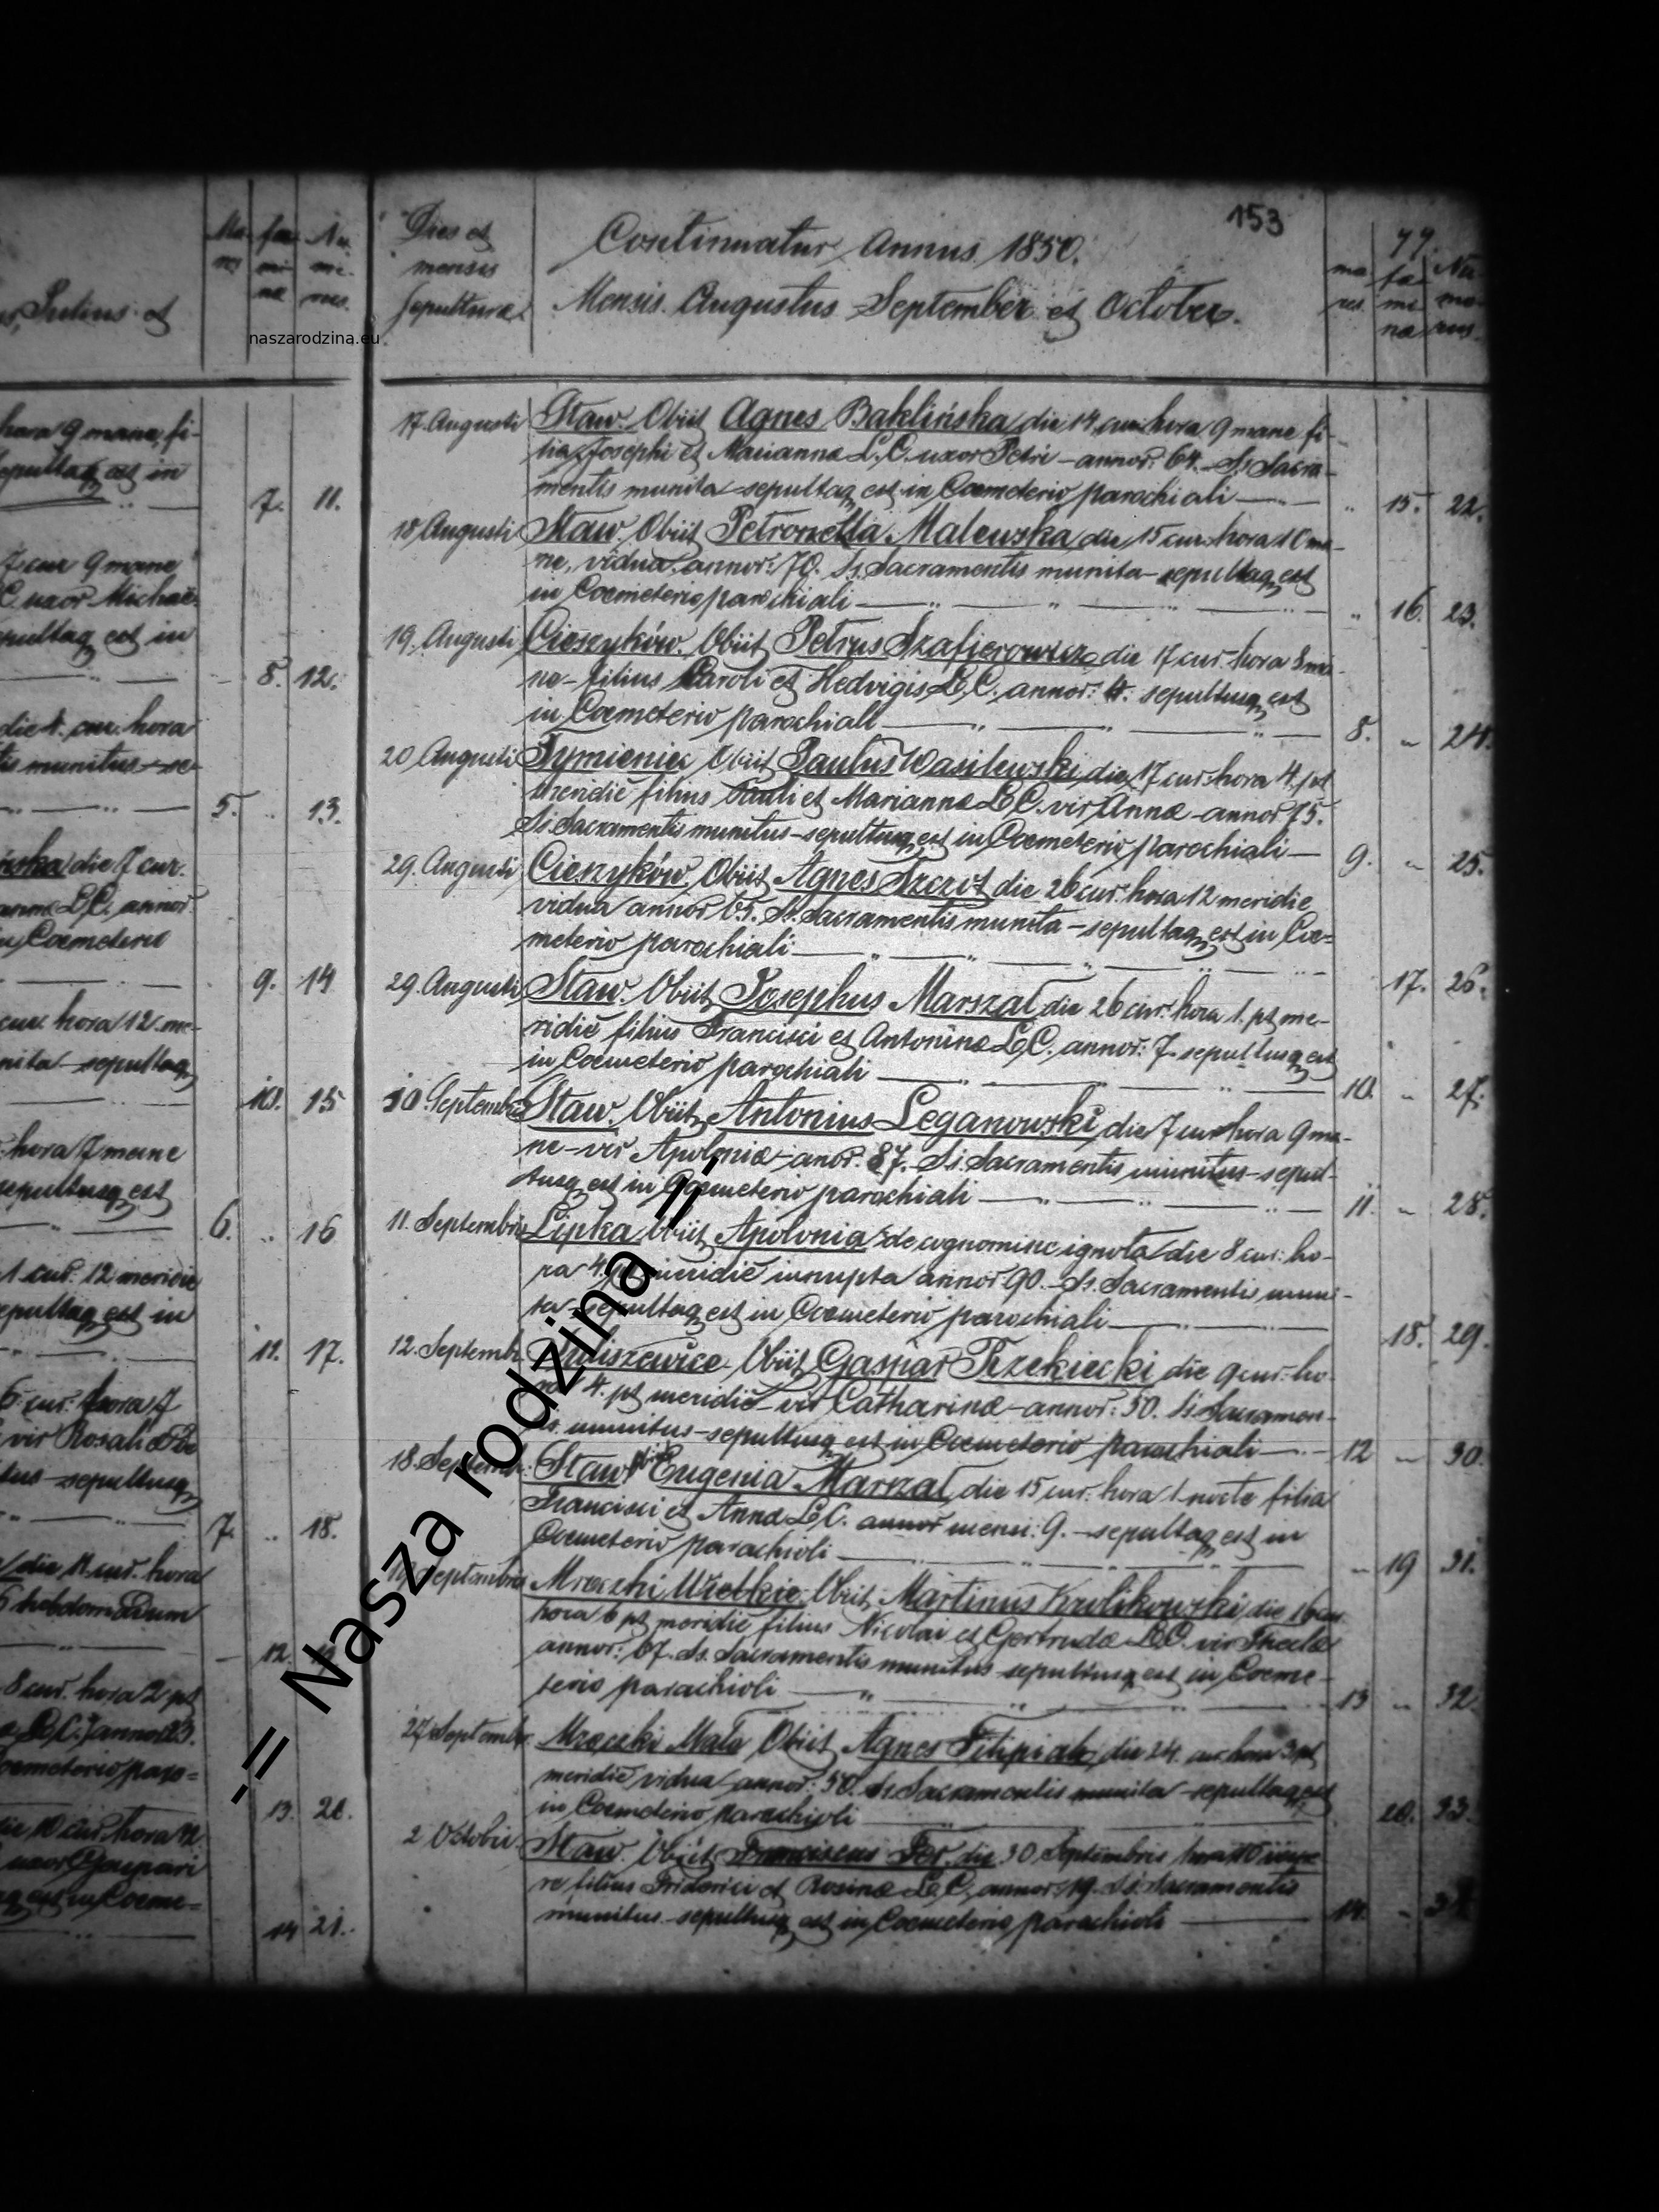 Ma- fæ- Nu-
res mi- me-
næ rus.
Julius et
hora 9 mane, fi-
sepultaq est in
7. 11.
7 cur 9 mane
C. uxor Michaë-
sepultaq est in
8. 12.
die 4. cur. hora
tis munitus - se-
5. 13.
die 7 cur.
annæ L.C. annor
in Coemeterio
9. 14
cur. hora 12 me-
nita - sepultaq
10. 15
hora 7 mane
sepultusq est
6. 16
1 cur. 12 meridie
sepultaq est in
11. 17.
cur. hora 7
vir Rosaliæ
tus - sepultusq
7. 18.
die 11. cur. hora
hebdomadum
12.
8 cur. hora 2 pt
L.C. annor 23.
Coemeterio paro=
13. 20.
die 10 cur. hora 12
uxor Gaspari
est in Coeme=
14 21.
153
Dies et
mensis
sepulturæ
Continuatur Annus 1850.
Mensis Augustus September et October.
79.
ma- fæ- Nu-
res mi- me-
næ rus.
17. Augusti Staw. Obiit Agnes Baklińska die 14 cur. hora 9 mane fi-
lia Josephi et Mariannæ L.C. uxor Petri - annor: 64. - Ss Sacra-
mentis munita - sepultaq est in Coemeterio parochiali 15. 22.
18 Augusti Staw. Obiit Petronella Malewska die 15 cur: hora 10 ma-
ne, vidua annor: 70. Ss. Sacramentis munita - sepultaq est
in Coemeterio parochiali 16. 23.
19. Augusti Cieszyków. Obiit Petrus Szafierowicz die 17 cur. hora 8 ma-
ne - filius Caroli et Hedvigis L.C. annor: 4. sepultusq est
in Coemeterio parochiali 8. 24.
20 Augusti Tymieniec Obiit Paulus Wasilewski, die 17 cur. hora 4. pt
meridie filius Pauli et Mariannæ L.C. vir Annæ - annor 75.
Ss Sacramentis munitus - sepultusq est in Coemeterio parochiali 9. 25.
29. Augusti Cieszyków. Obiit Agnes Szczot die 26 cur. hora 12 meridie
vidua annor 65. Ss. Sacramentis munita - sepultaq est in Coe=
meterio parochiali 17. 26.
29. Augusti Staw. Obiit Josephus Marszał die 26 cur. hora 1. pt me-
ridie filius Francisci et Antoninæ L.C. annor: 7. sepultusq est
in Coemeterio parochiali 10. 27.
10 Septembris Staw. Obiit Antonius Leganowski die 7 cur hora 9 ma-
ne - vir Apoloniæ - anor. 87. - Ss. Sacramentis munitus - sepul-
tusq est in Coemeterio parochiali 11. 28.
11. Septembris Lipka Obiit Apolonia de cognomine ignota die 8 cur: ho-
ra 4. pt meridie innupta annor. 90. - Ss. Sacramentis muni-
ta - sepultaq est in Coemeterio parochiali 18. 29.
12. Septembr. Obiit Gaspar Trzekiecki die 9 cur: ho-
ra 4. pt meridie vir Catharinæ - annor: 50. Ss. Sacramen-
tis munitus - sepultusq est in Coemeterio parochiali 12 30.
18. Septembr. Staw. Obiit Eugenia Marszał die 15 cur: hora 1. nocte filia
Francisci et Annæ L.C. annor mensi: 9. - sepultaq est in
Coemeterio parochiali 19 31.
Septembris Mroczki Wielkie. Obiit Martinus Krolikowski die 16 cur.
hora 6 pt meridie filius Nicolai et Gertrudæ L.C. vir Theclæ
annor: 67. Ss. Sacramentis munitus sepultusq est in Coeme-
terio parochiali 13 32.
27 Septembr. Mroczki Małe Obiit Agnes Filipiak die 24. cur hora 3 pt
meridie vidua annor: 50. Ss Sacramentis munita - sepultaq est
in Coemeterio parochiali 20. 33.
2 Octobris Staw. Obiit Franciscus die 30 Septembris hora 10
re filius Friderici et Rosinæ L.C. annor: 19. Ss. Sacramentis
munitus - sepultusq est in Coemeterio parochiali 14. 34
naszarodzina.eu
-= Nasza rodzina =-